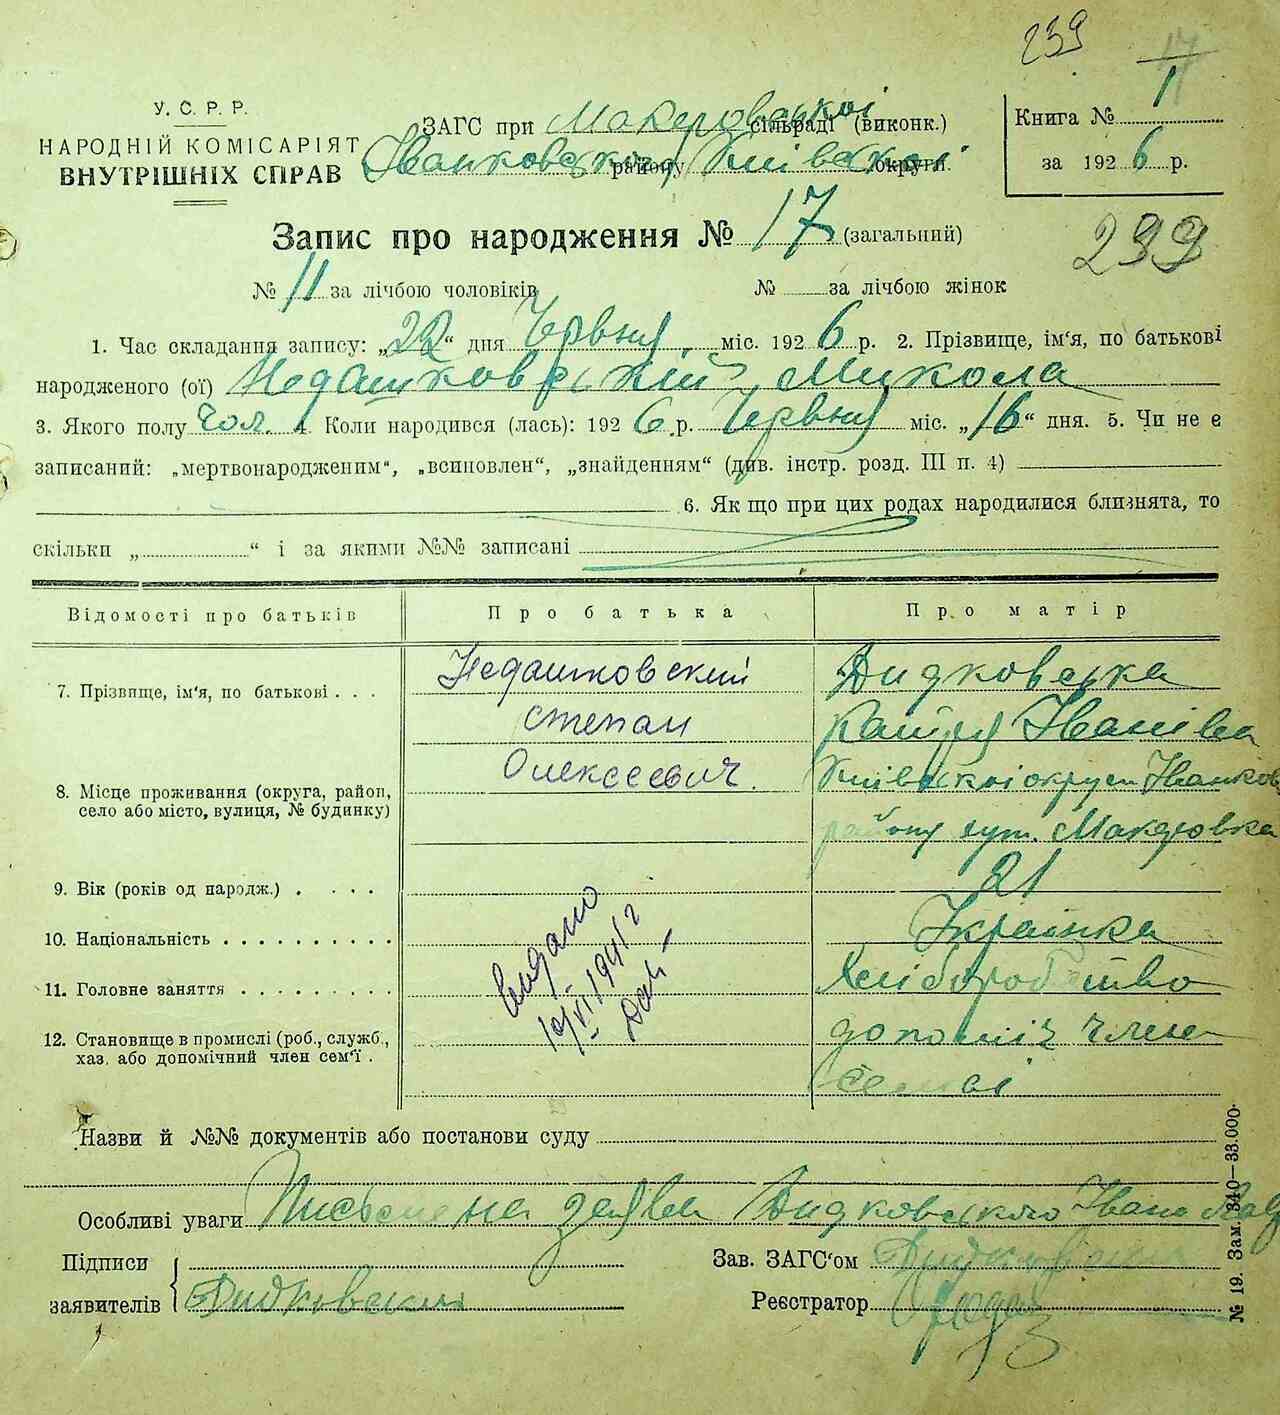 239
17
У. С. Р. Р.
НАРОДНІЙ КОМІСАРІЯТ
ВНУТРІШНІХ СПРАВ
ЗАГС при сільраді (виконк.)
Іванковського району Київської округи.
Книга № 1
за 1926 р.
Запис про народження № 17 (загальний)
299
№ 11 за лічбою чоловіків № за лічбою жінок
1. Час складання запису: „22“ дня Червня міс. 1926 р. 2. Прізвище, ім‘я, по батькові
народженого (ої) Недашковський Микола
3. Якого полу чол. 4. Коли народився (лась): 1926 р. Червня міс. „16“ дня. 5. Чи не є
записаний: „мертвонародженим“, „всиновлен“, „знайденням“ (див. інстр. розд. III п. 4)
6. Як що при цих родах народилися близнята, то
скільки „ “ і за якими №№ записані
Відомості про батьків Про батька Про матір
7. Прізвище, ім‘я, по батькові . . . Недашковский Дидковська
степан Катря Іванівна
Олексеевич.
8. Місце проживання (округа, район, Київської округи Іванков
село або місто, вулиця, № будинку) району хут. Макаровка
9. Вік (років од народж.) . . . . 21
10. Національність . . . . . . . . . . Українка
11. Головне заняття . . . . . . . . . Хліборобство
12. Становище в промислі (роб., служб., допоміч член
хаз. або допомічний член сем‘ї . семьі
видано
19/VI 1941 г
Назви й №№ документів або постанови суду
Особливі уваги Письмена заява Дидковського Івана
Підписи
заявителів Дидковский
Зав. ЗАГС‘ом Дидковский
Реєстратор
№ 19. Зам. 340—33.000.